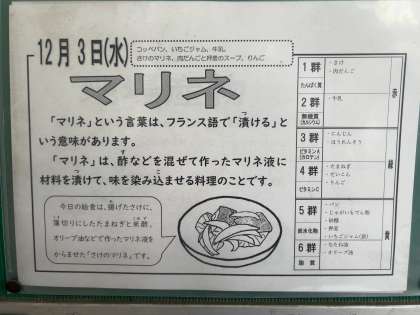 12月 3日(水)
コッペパン、いちごジャム、牛乳、
さけのマリネ、肉だんごと野菜のスープ、りんご
マリネ
「マリネ」という言葉は、フランス語で「漬ける」と
いう意味があります。
「マリネ」は、酢などを混ぜて作ったマリネ液に
材料を漬けて、味を染み込ませる料理のことです。
今日の給食は、揚げたさけに、
薄切りにしたたまねぎと米酢、
オリーブ油などで作ったマリネ液を
からませた「さけのマリネ」です。
赤
1 群
たんぱく質
・さけ
・肉だんご
2 群
無機質
(カルシウム)
・牛乳
緑
3 群
ビタミンA
(カロテン)
・にんじん
・ほうれんそう
4 群
ビタミンC
・たまねぎ
・だいこん
・りんご
黄
5 群
炭水化物
・パン
・じゃがいもでん粉
・砂糖
・いちごジャム
6 群
脂質
・なたね油
・オリーブ油